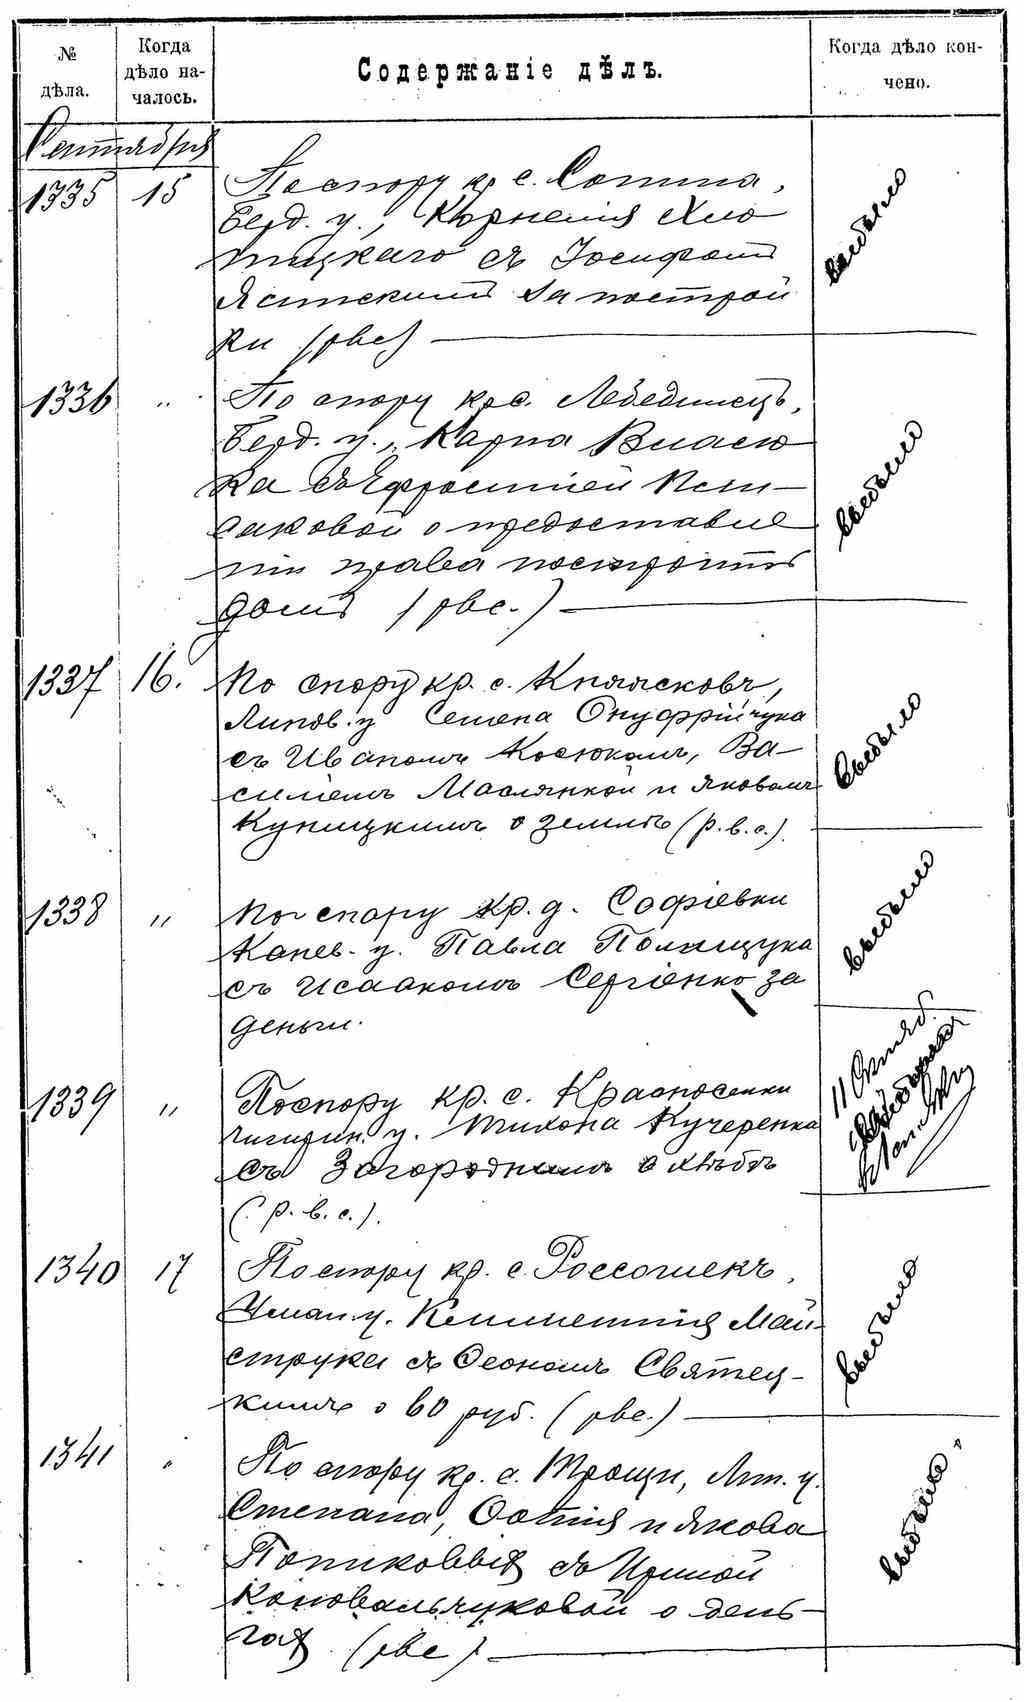 № дѣла.
Когда дѣло началось.
Содержаніе дѣлъ.
Когда дѣло кончено.
Сентября
1335 15 По спору кр. с. Сопина,
Берд. у., Корнелія Хмо
тицкаго съ Іосифомъ
Ясинскимъ за построй
ки (рвс)
выбыло
1336 „ По спору кр. с. Лебединецъ,
Берд. у., Карпа Власю
ка съ Ефросиніей
саковой о предоставле
ніи права построить
домъ (рвс.)
выбыло
1337 16. По спору кр. с. Княжковъ,
Липов. у. Семена Онуфрійчука
съ Иваномъ Косюкомъ, Ва-
силіемъ Маслянкой и Яковомъ
Куницкимъ о землѣ (р.в.с.).
выбыло
1338 „ По спору кр. д. Софіевки
Канев. у. Павла Полищука
съ Исаакомъ Сергіенко за
деньги.
выбыло
1339 „ По спору кр. с. Красносенки
Чигирин. у. Тихона Кучеренка
съ Загороднимъ о хлѣбѣ
(р.в.с.).
11 Октяб.
1340 17 По спору кр. с. Россошекъ,
Уман. у. Климентія Май-
струка съ Феономъ Святец-
кимъ о 60 руб. (рвс.)
выбыло
1341 „ По спору кр. с. Трощи, Лип. у.
Степана, Фотія и Якова
Попиковыхъ съ Ириной
Коновальчуковой о день-
гахъ (рвс)
выбыло